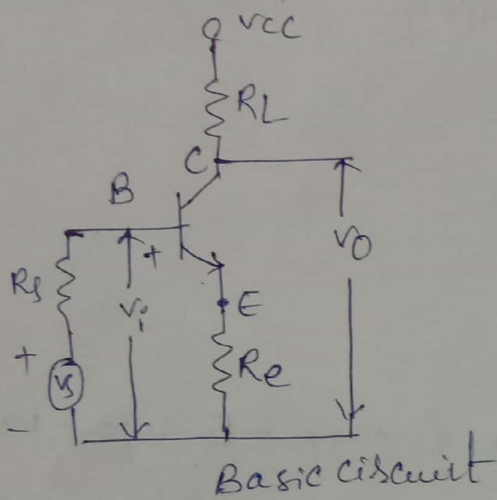 VCC
RL
C
B
+
Vo
Rs
Vi
E
+
Vs
Re
-
Basic circuit